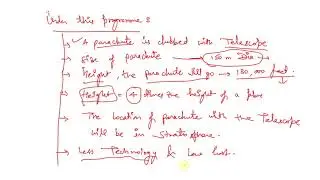 Under this programme :
→ A parachute is clubbed with Telescope
→ Size of parachute 150 m Dia
→ Height, the parachute will go → 130,000 feet.
→ Height = 4 times the height of a plane
→ The location of parachute with the Telescope
will be in Stratosphere.
→ Less Technology & Low Cost.